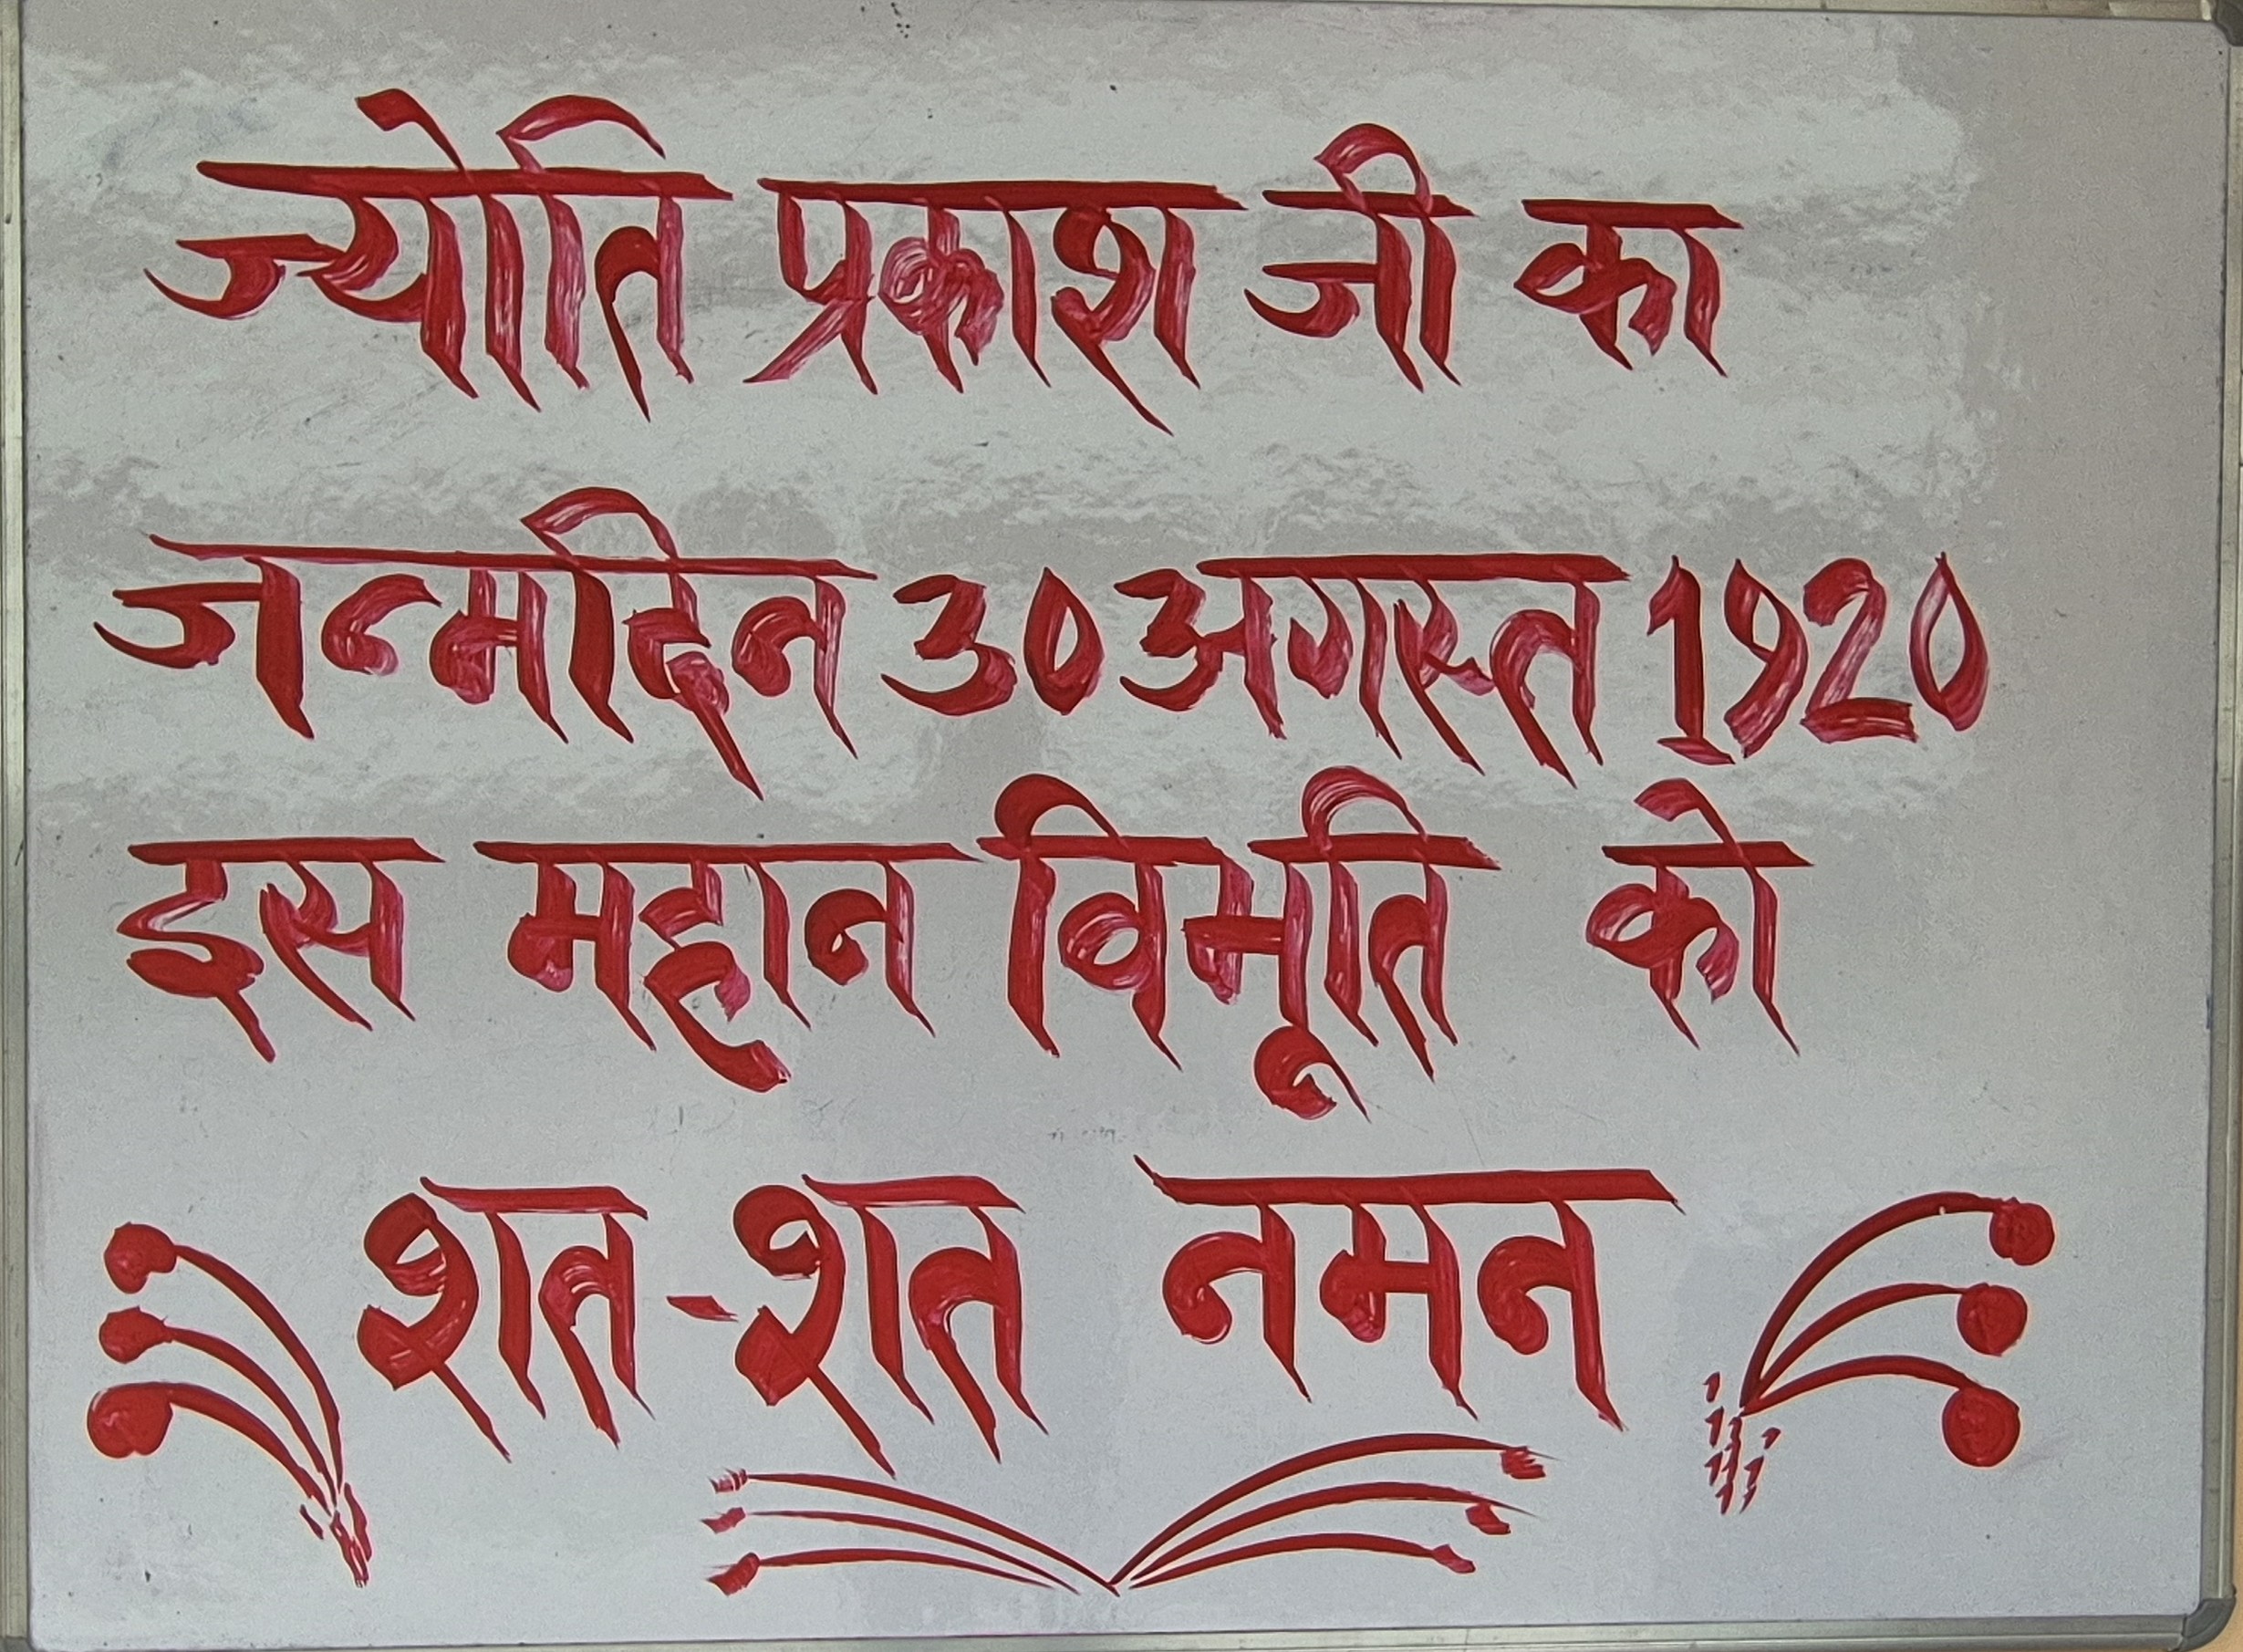 ज्योति प्रकाश जी का
जन्मदिन 30 अगस्त 1920
इस महान विभूति को
शत-शत नमन